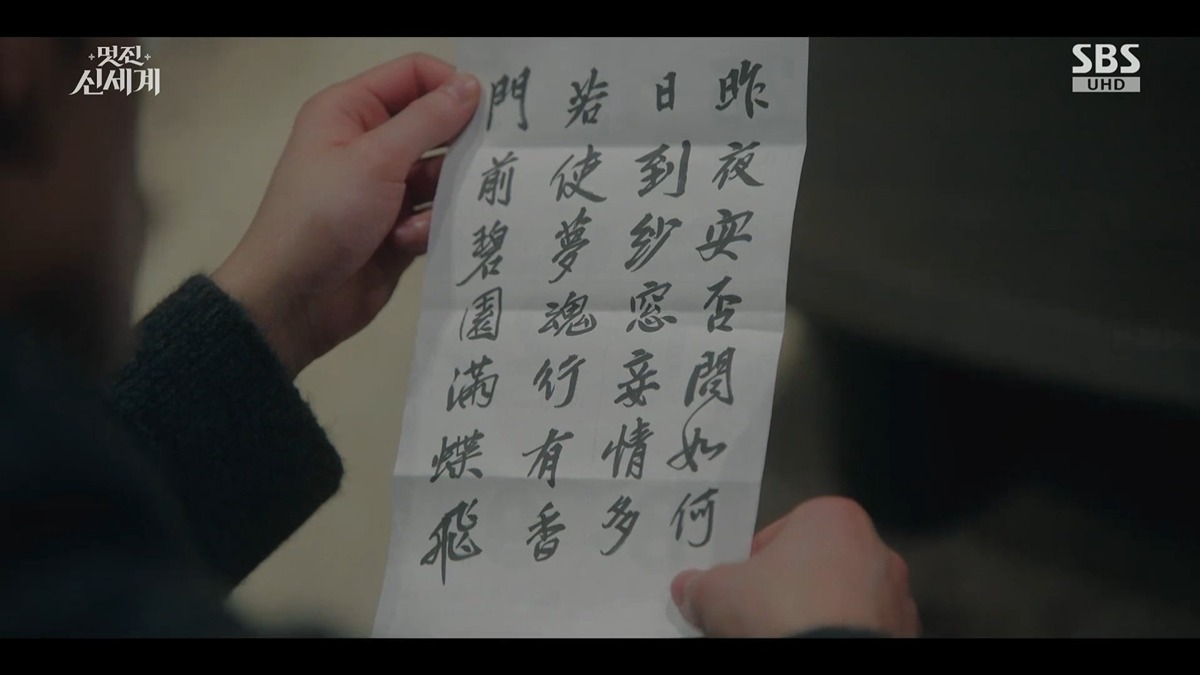 멋진
신세계
SBS
UHD
昨夜安否問如何
日到紗窓妾情多
若使夢魂行有香
門前碧園滿蝶飛